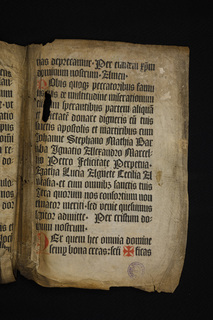 tias deprecamur. Per eundem xp̄m
dominum nostrum. Amen.
Nobis quoqꝫ peccatoribus famu
lis tuis de multitudine miserationum
tuarum sperantibus partem aliquā
et societatem donare digneris cū tuis
sanctis apostolis et martiribus cum
Johanne Stephano Mathia Bar
naba Ignatio Alexandro Marcel
lino Petro Felicitate Perpetua
Agatha Lucia Agnete Cecilia A
nastasia et cum omnibus sanctis tuis
intra quorum nos consortium non
estimator meriti sed venie quesumus
largitor admitte. Per cristum do
minum nostrum.
Per quem hec omnia domine
semp̱ bona creas: scti ✠ ficas